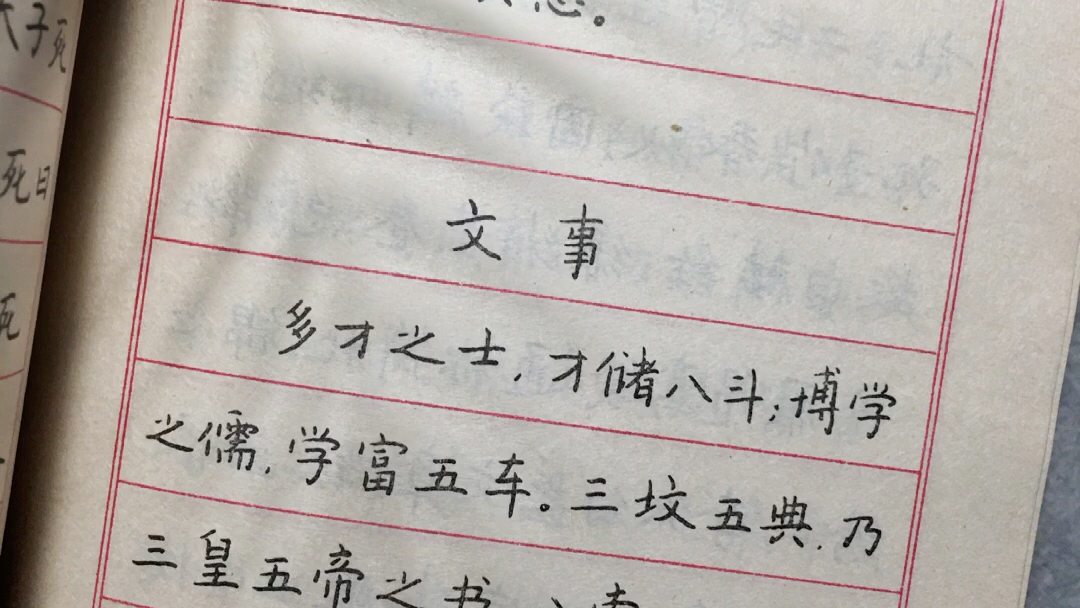 文事
多才之士，才储八斗；博学
之儒，学富五车。三坟五典，乃
三皇五帝之书
大子死
死曰
死